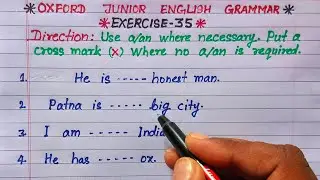 *OXFORD JUNIOR ENGLISH GRAMMAR*
*EXERCISE-35*
Direction: Use a/an where necessary. Put a
cross mark (x) Where no a/an is required.
1. He is ----- honest man.
2. Patna is ----- big city.
3. I am -----
4. He has ----- ox.